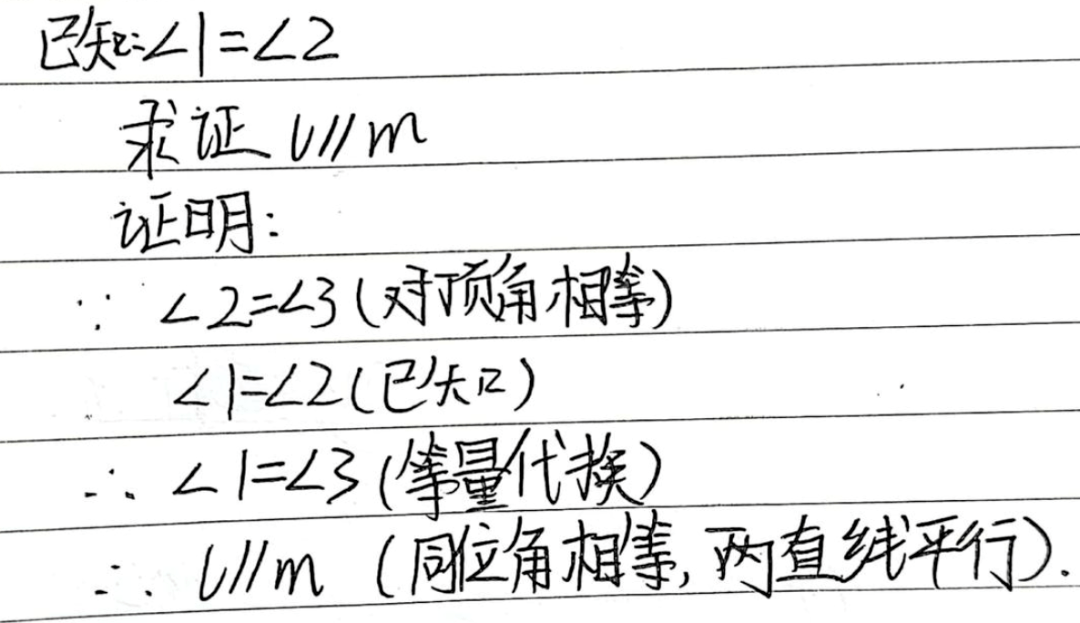 已知:∠1=∠2
求证 l//m
证明:
∵ ∠2=∠3(对顶角相等)
∠1=∠2(已知)
∴ ∠1=∠3(等量代换)
∴ l//m (同位角相等,两直线平行).